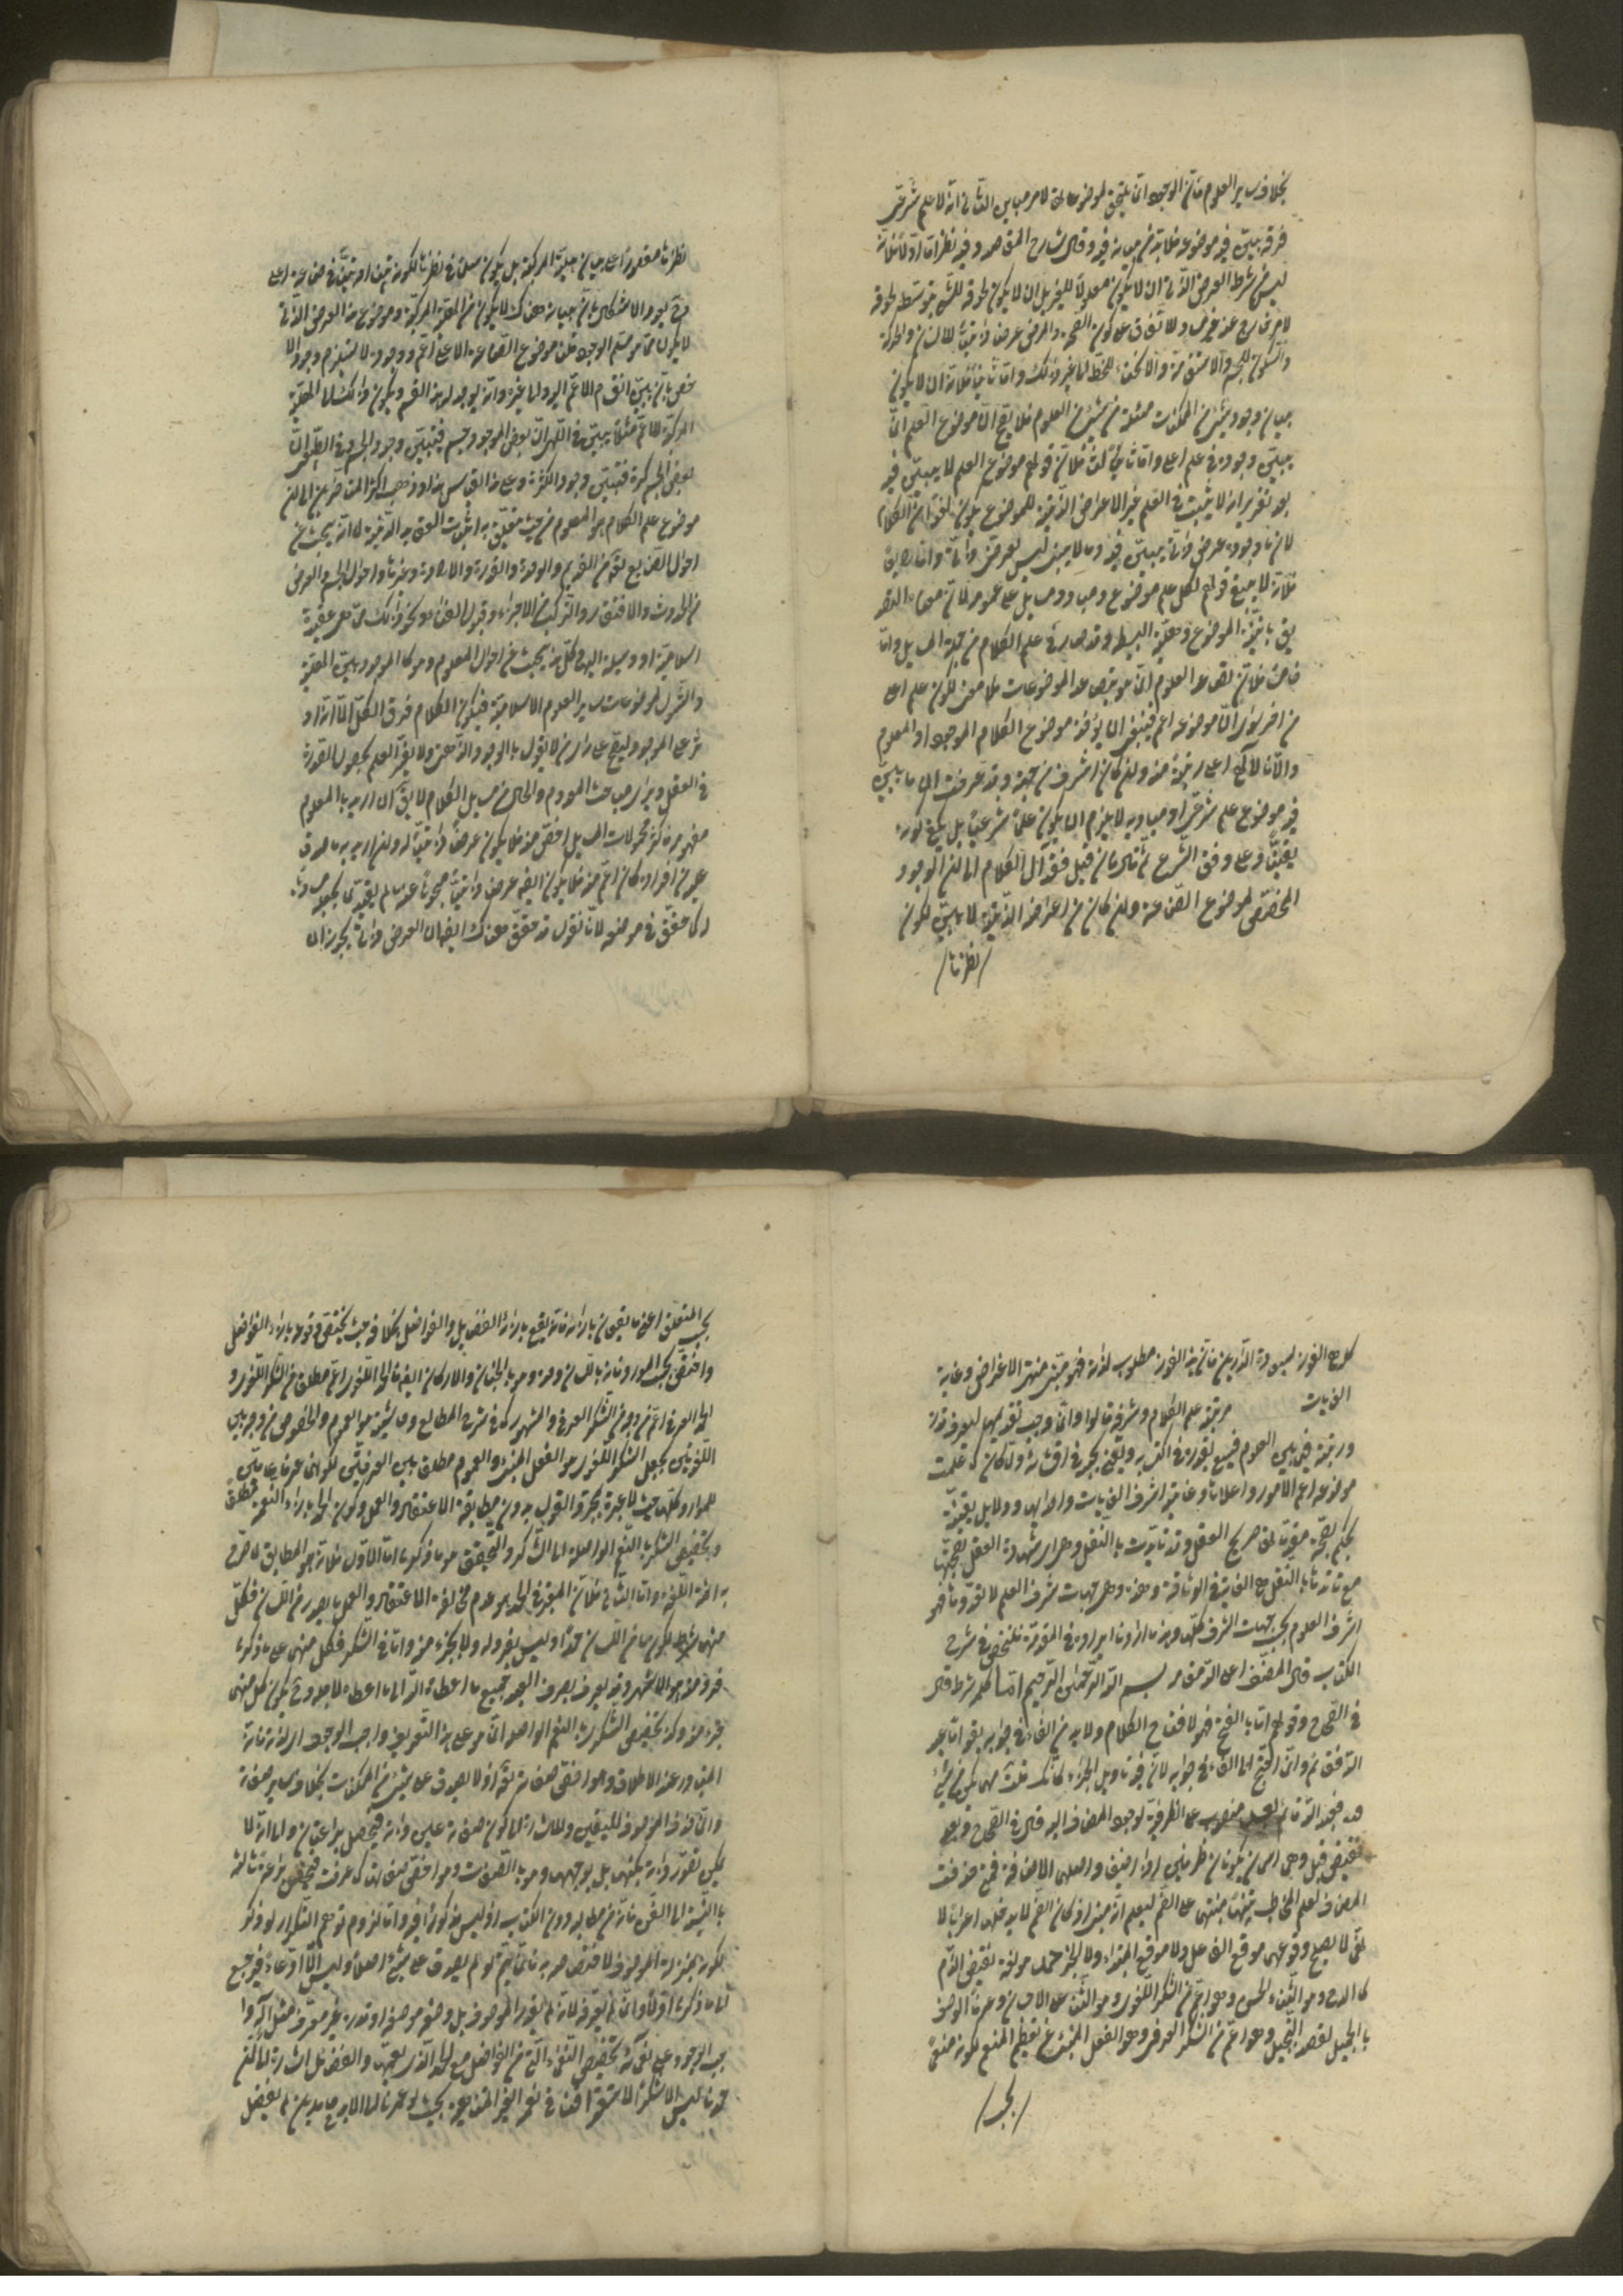 بخلاف ساير العلوم فانّ الوجود انّما يلحق لموضوعاتها لامر مباين الثاني انّه لا علم شرعي
فوقه يبيّن فيه موضوعه فلا بدّ من بيانه فيه وقال شارح المقاصد وفيه نظر اما اوّلاً فلانّه
ليس من شرط العرض الذّاتي ان لا يكون معلولاً للغير بل ان لا يكون لحوقه للشيء بتوسّط لحوقه
لامر خارج عنه غير مساو للاتفاق على كون الصحّة والمرض عرضا ذاتيّاً للانسان والحركة
والسكون للجسم والاستقامة والانحناء للخطّ الى غير ذلك وامّا ثانياً فلانّه ان لا يكون
بيان وجود شيء من الممكنات مسئلة من شيء من العلوم فلا يصحّ انّ موضوع العلم انّما
يبيّن وجوده في علم اعلى وامّا ثالثاً فلانّ قولهم موضوع العلم لا يبيّن فيه
بعد تقرير انه لا يثبت في العلم غير الاعراض الذّاتيّة للموضوع يكون لغواً من الكلام
لانّ ما وجوده عرض ذاتي يبيّن فيه وما لا يبيّن ليس بعرض ذاتي وامّا رابعاً
فلانّه لا يبقى قولهم لكلّ علم موضوع ومبادٍ ومسايل على عمومه لانّ معناه التصديق
بانّيّة الموضوع وهليّته البسيطة وقد صار في علم الكلام من جملة المسايل وامّا
خامساً فلانّ تصاعد العلوم انّما هو بتصاعد الموضوعات فلا معنى لكون علم اعلى
من آخر سوى انّ موضوعه اعم فينبغي ان يؤخذ موضوع الكلام الموجود او المعلوم
والّا فالالهي اعلى رتبة منه وان كان اشرف من جهة وقد عرفت انّ ما يبيّن
فيه موضوع علم شرعي او مباديه لا يلزم ان يكون علماً شرعيّاً بل يكفي كونه
يقينيّاً وعلى وفق الشرع ثم قال فان قيل فقد آل الكلام الى ان الوجود
المختصّ لموضوع الصّناعة وان كان من اعراضه الذّاتيّة لا يبيّن لكون
نظرنا
نظرنا مقصوراً على بيان هليّته المركّبة بل يكون مسلّماً في نظرنا لكونه بيّناً او مبيّناً في صناعة اعلى
وحينئذ يعود الاشكال بانّ بيانه هناك لا يكون من الهليّة المركّبة وموضوع هذا العرض الذّاتي
لا يكون ممّا هو مسلّم الوجود قلنا موضوع الصّناعة الاعلى اعمّ ووجوده لا يستلزم وجود الا
خصّ بان يبيّن انقسام الاعمّ اليه والى غيره وانّه يوجد له هذا القسم ويكون ذلك الى الهليّة
المركّبة للاعمّ مثلاً يبيّن في الالهي انّ بعض الموجود جسم فيتبيّن وجود الجسم وفي الطّبيعي انّ
بعض الجسم كرة فيتبيّن وجود الكرّة وعلى هذا القياس هذا وذهب اكثر المتاخرين الى ان
موضوع علم الكلام هو المعلوم من حيث يتعلّق به اثبات العقايد الدّينيّة لما انّه يبحث عن
احوال الصّانع تعالى من القدم والوحدة والقدرة والارادة وغيرها واحوال الجسم والعرض
من الحدوث والافتقار والتركيب من الاجزاء وقبول الفناء ونحو ذلك ممّا هو عقيدة
اسلاميّة او وسيلة اليها وكلّ هذا بحث عن احوال المعلوم وهو كالموجود بين الهليّة
والشّمول لموضوعات ساير العلوم الاسلاميّة فيكون الكلام فوق الكلّ الّا انّه اوثر
على الموجود ليصحّ على راي من لا يقول بالوجود الذّهنى ولا يفسّر العلم بحصول الصّورة
في العقل ويرى مباحث المعدوم والحال من مسايل الكلام لا يقال ان اريد بالمعلوم
مفهومه فكثير من محمولات المسايل اخصّ منه فلا يكون عرضاً ذاتيّاً له وان اريد به ما صدق
عليه من افراده كان اعمّ منه فلا يكون ايضاً عرضاً ذاتيّاً مبحوثاً عنه ما لم يقيّد بما يجعله مساوياً
له كما حقّق في موضعه لانّا نقول قد حقّق هناك ايضاً انّ العرض الذّاتي يجوز ان
كلوح الفوز بسعادة الدّارين فانّ هذا الفوز مطلوب لذاته فهو منتهى الاغراض وغاية
الغايات مرتبة علم الكلام وشرفه قالوا وانّما وجب تقديمها ليعرف قدره
ورتبته فيما بين العلوم فيسعى بقدره في اكتسابه ويعتنى بحسبه في اقتنائه ولمّا كان كما علمت
موضوعه اعمّ الامور واعلاها وغايته اشرف الغايات واولاها ودلايله يقينيّة
يحكم بصحّة مقدّماتها صريح العقل وقد تايّدت بالنّقل وهي اي شهادة العقل بصحّتها
مع تايّدها بالنقل هي الغاية في الوثاقة وهذه هي جهات شرف العلم لا تعدوها فهو
اشرف العلوم بحسب جهات الشرف كلّها وهذا ما اردنا ايراده في المقدّمة فلنخض في شرح
الكتاب قال المصنّف اعلى اللّه مقامه بسم اللّه الرّحمن الرّحيم امّا كلمة شرط قال
في الصّحاح وقولهم امّا بالفتح فهو لافتتاح الكلام ولا بدّ من الفاء في جوابه يقول امّا عبد
اللّه فقائم وانّما احتيج الى الفاء في جوابه لانّ فيه تاويل الجزاء كأنّك قلت مهما يكن من شيء
فعبد اللّه قائم بعد منصوب على الظرفيّة لوجود المضاف اليه قال في الصّحاح وبعد
نقيض قبل وهما اسمان يكونان ظرفين اذا اضيفا واصلهما الاضافة فمتى حذفت
المضاف اليه لعلم المخاطب بنيتهما على الضمّ ليعلم انّه مبنيّ اذ كان الضمّ لا يدخلهما اعراباً لا
نّهما لا يصلح وقوعهما موقع الفاعل ولا موقع المبتداء ولا الخبر حمد هو لغة نقيض الذّم
كالمدح وهو الثّناء الحسن وهو اعمّ من الشكر اللّغوي وهو الثّناء على الاحسان وعرفاً الوصف
بالجميل لقصد التّبجيل وهو اعمّ من الشكر العرفي وهو الفعل المنبىء عن تعظيم المنعم لكونه منعماً
بحسب
بحسب المتعلّق اعني ما يقع بازائه فانّه يقع بازاء الفضايل والفواضل بخلافه حيث يختصّ وقوعه بازاء الفواضل
واخصّ بحسب المورد فانّه باللّسان وحده وهو بالجنان والاركان ايضاً فالحمد اللّغوي اعمّ مطلقاً من الشكر اللّغوي و
الحمد العرفي اعمّ من وجه من الشّكر العرفي والمشهور كما في شرح المطالع وحاشيته هو العموم والخصوص من وجه بين
اللّغويّين بجعل الشكر اللّغوي هو الفعل المنبىء والعموم مطلقاً بين العرفيّين لكونهما عرفاً عامّين
للموارد كلّها حيث لا عبرة بمجرّد القول بدون مطابقة الاعتقاد والعمل وكون الحمد بازاء النّعمة مطلقاً
وتخصيص الشكر بالنّعم الواصلة الى الشاكر والتّحقيق هو ما ذكرنا امّا الاوّل فلانّه هو المطابق لما صرّح
به ائمّة اللّغة وامّا الثّاني فلانّ المعتبر في الحمد هو عدم مخالفة الاعتقاد والعمل لما يصدر من اللّسان فكلّ
منهما شرط لكون ما من اللّسان حمداً وليس بفرد له ولا بجزء منه وامّا في الشكر فكلّ منهما على ما ذكرنا
فرد منه هو الاشهر وقد يعرّف بصرف العبد جميع ما اعطاه اللّه الى ما اعطاه لاجله وحينئذ يكون كلّ منهما
جزء منه وذكر تخصيص الشّكر بالنّعم الواصلة انّما هو على هذا التّعريف واجب الوجود لذاته فانّه
المتبادر عند الاطلاق وهو اخصّ صفاته تعالى اذ لا يصدق على شيء من الممكنات بخلاف ساير صفاته
وانّما حذف الموصوف للتعيّن وللاشارة الى كون صفاته عين ذاته فيحصل براعتان والى انّه لا
يمكن تصوّر ذاته بكنهها بل بوجهها وهو بالصّفات وهو اخصّ صفاتها كما عرفت فيحصل براعة ثالثة
بالنّسبة الى الفنّ فانّه من مطالبه دون الكتاب اذ ليس مذكوراً فيه وامّا لزوم توهّم التّكرار لو ذكر
لكونه بمنزلة الموصوف لاختصاصه به فانّما يتمّ لو لم يصدق على شيء اصلاً وليس الّا ادّعاءً فيرجع
الى ما ذكرنا اوّلاً وانّما لم يعرّفه لانّه لم يقدر الموصوف بل وضع موضعه او قدره غير معرّف مثل آله وا
جب الوجود على نعمائه تخصيص النّعماء الّتي من الفواضل مع انّ الحمد الّذي يعمّها والفضايل اشارة الى انّ
حمدنا ليس الّا شكراً لاستغراقنا في نعمه الغير المتناهية بحيث لو عمرنا الى الابد حامدين لم يفضل